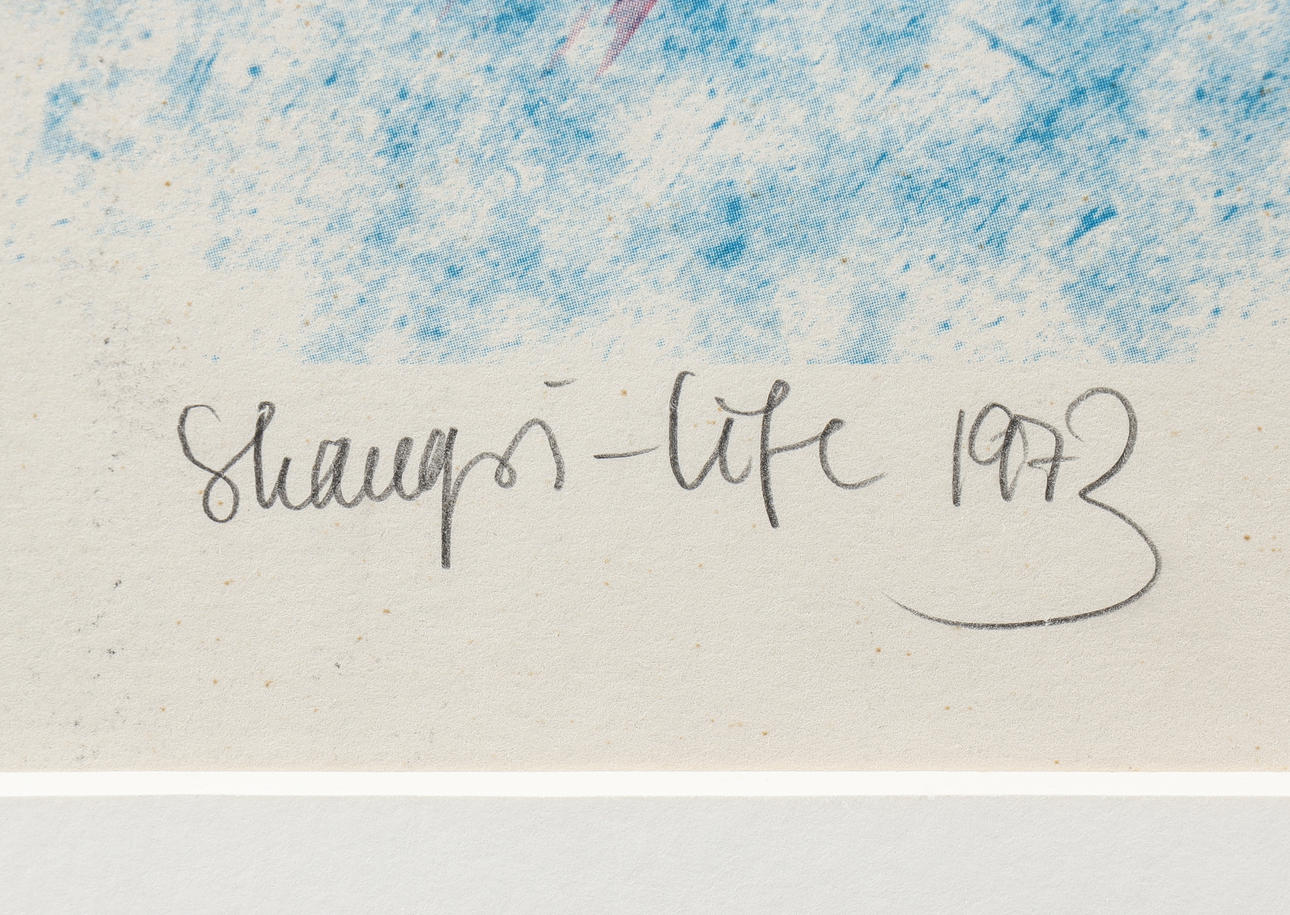 Shangri-life 1973